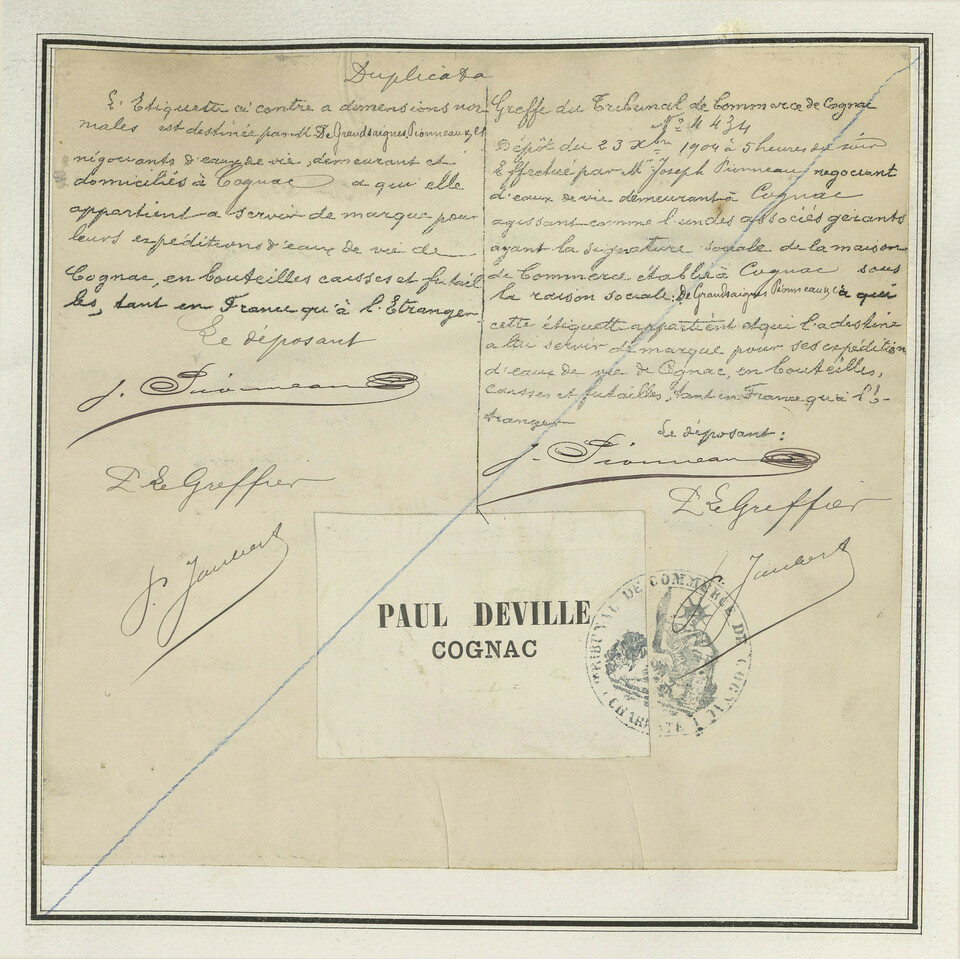 Duplicata
L'Etiquette ci contre a dimensions nor-
males est destinée par M. De Grandsaignes, Pionneau, et
négociants d'eaux de vie, demeurant et
domiciliés à Cognac a qui elle
appartient a servir de marque pour
leurs expéditions d'eaux de vie de
Cognac, en bouteilles caisses et futail
les, tant en France qu'à l'Etranger
Le déposant
J. Pionneau
Le Greffier
Greffe du Tribunal de Commerce de Cognac
No 4434
Dépôt du 23 Xbre 1904 à 5 heures du soir
Effectué par Mr Joseph Pionneau, negociant
d'eaux de vie demeurant à Cognac
agissant comme l'un des associés gérants
ayant la signature sociale de la maison
de Commerce établie à Cognac sous
la raison sociale: De Grandsaignes Pionneau, à qui
cette étiquette appartient et qui l'a destine
a lui servir de marque pour ses expédition
d'eaux de vie de Cognac, en bouteilles,
caisses et futailles, tant en France qu'à l'E-
tranger
Le déposant:
J. Pionneau
Le Greffier
PAUL DEVILLE
COGNAC
TRIBUNAL DE COMMERCE DE COGNAC
(CHARENTE)